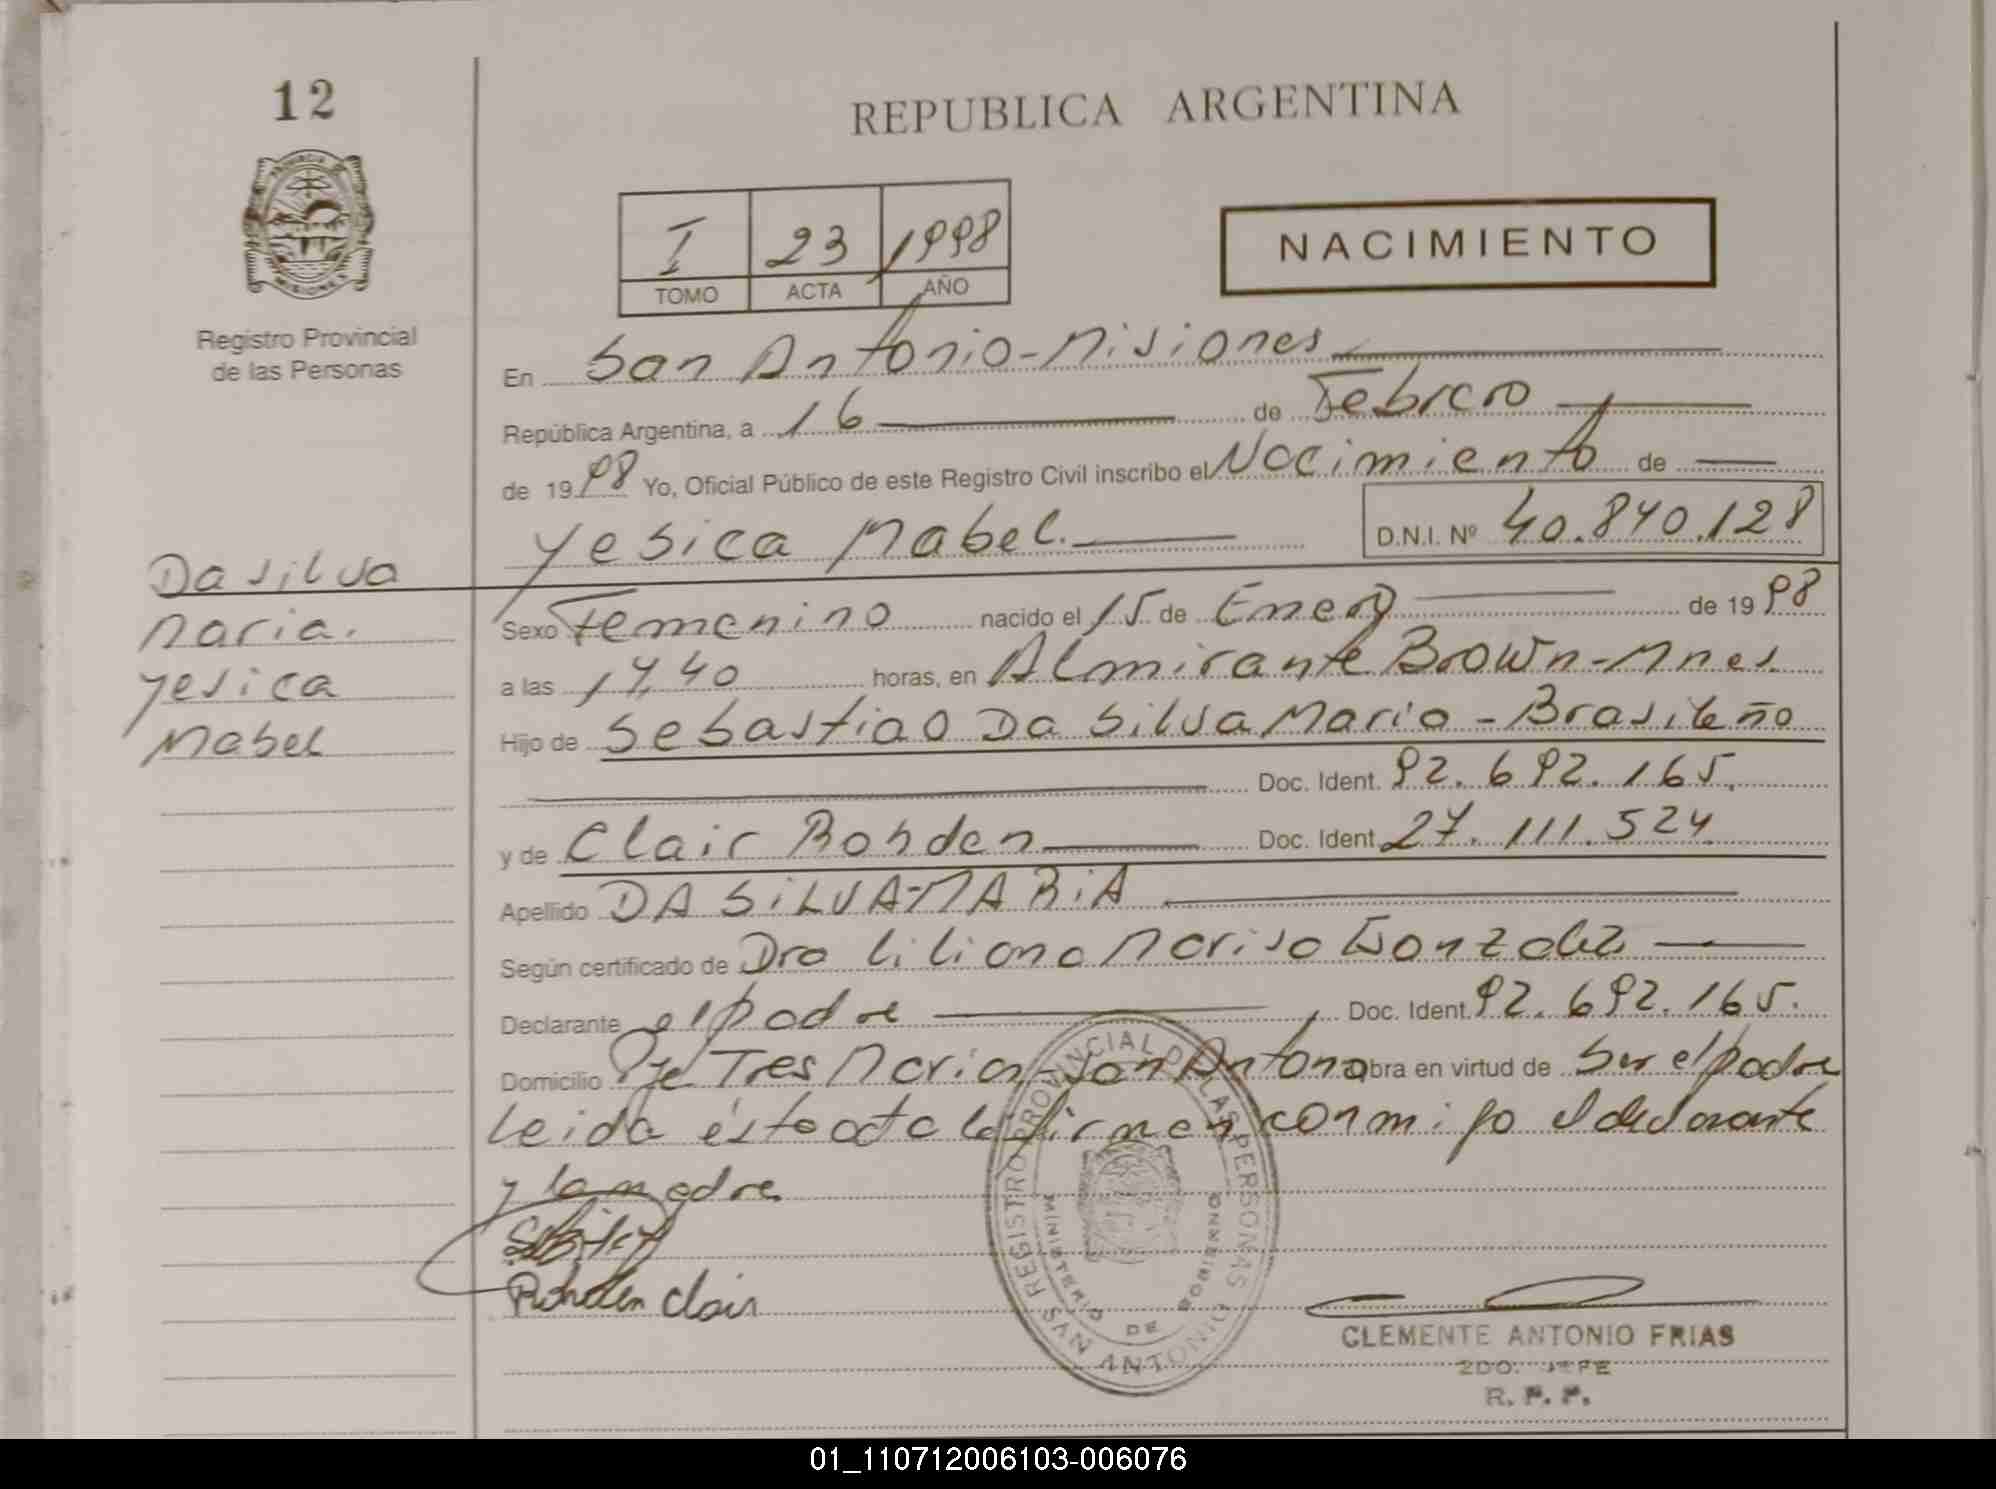 12
REPUBLICA ARGENTINA
I 23 1998
TOMO ACTA AÑO
NACIMIENTO
Registro Provincial
de las Personas
En San Antonio-Misiones
República Argentina, a 16 de Febrero
de 1998 Yo, Oficial Público de este Registro Civil inscribo el Nacimiento de
Yesica Mabel. D.N.I. Nº 40.840.128
Da silva
Maria.
Yesica
Mabel
Sexo Femenino nacido el 15 de Enero de 1998
a las 17,40 horas, en Almirante Brown-Mnes.
Hijo de Sebastiao Da Silva Maria - Brasileño
Doc. Ident. 92.692.165.
y de Clair Rohden Doc. Ident. 27.111.524
Apellido DA SiLVA-MARiA
Según certificado de Dra Liliana Marisa Gonzalez
Declarante el padre Doc. Ident. 92.692.165.
Domicilio Pje Tres Maria-San Antonio obra en virtud de Ser el padre
Leida ésta acta la firman conmigo el declarante
y la madre
Rohden Clair
REGISTRO PROVINCIAL DE LAS PERSONAS
MINISTERIO DE GOBIERNO
SAN ANTONIO
CLEMENTE ANTONIO FRIAS
2DO. JEFE
R. P. P.
01_110712006103-006076